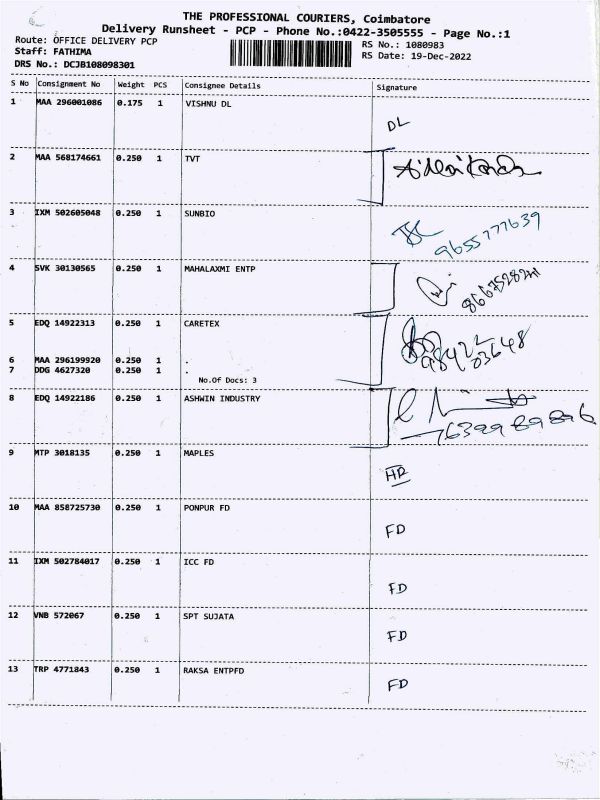 THE PROFESSIONAL COURIERS, Coimbatore
Delivery Runsheet - PCP - Phone No.:0422-3505555 - Page No.:1
Route: OFFICE DELIVERY PCP
RS No.: 1080983
Staff: FATHIMA
RS Date: 19-Dec-2022
DRS No.: DCJB108098301
S No Consignment No Weight PCS Consignee Details Signature
1 MAA 296001086 0.175 1 VISHNU DL
DL
2 MAA 568174661 0.250 1 TVT
3 IXM 502605048 0.250 1 SUNBIO
9655777639
4 SVK 30130565 0.250 1 MAHALAXMI ENTP
5 EDQ 14922313 0.250 1 CARETEX
6 MAA 296199920 0.250 1 .
7 DDG 4627320 0.250 1 .
No.Of Docs: 3
8 EDQ 14922186 0.250 1 ASHWIN INDUSTRY
9 MTP 3018135 0.250 1 MAPLES
10 MAA 858725730 0.250 1 PONPUR FD
FD
11 IXM 502784017 0.250 1 ICC FD
FD
12 VNB 572067 0.250 1 SPT SUJATA
FD
13 TRP 4771843 0.250 1 RAKSA ENTPFD
FD